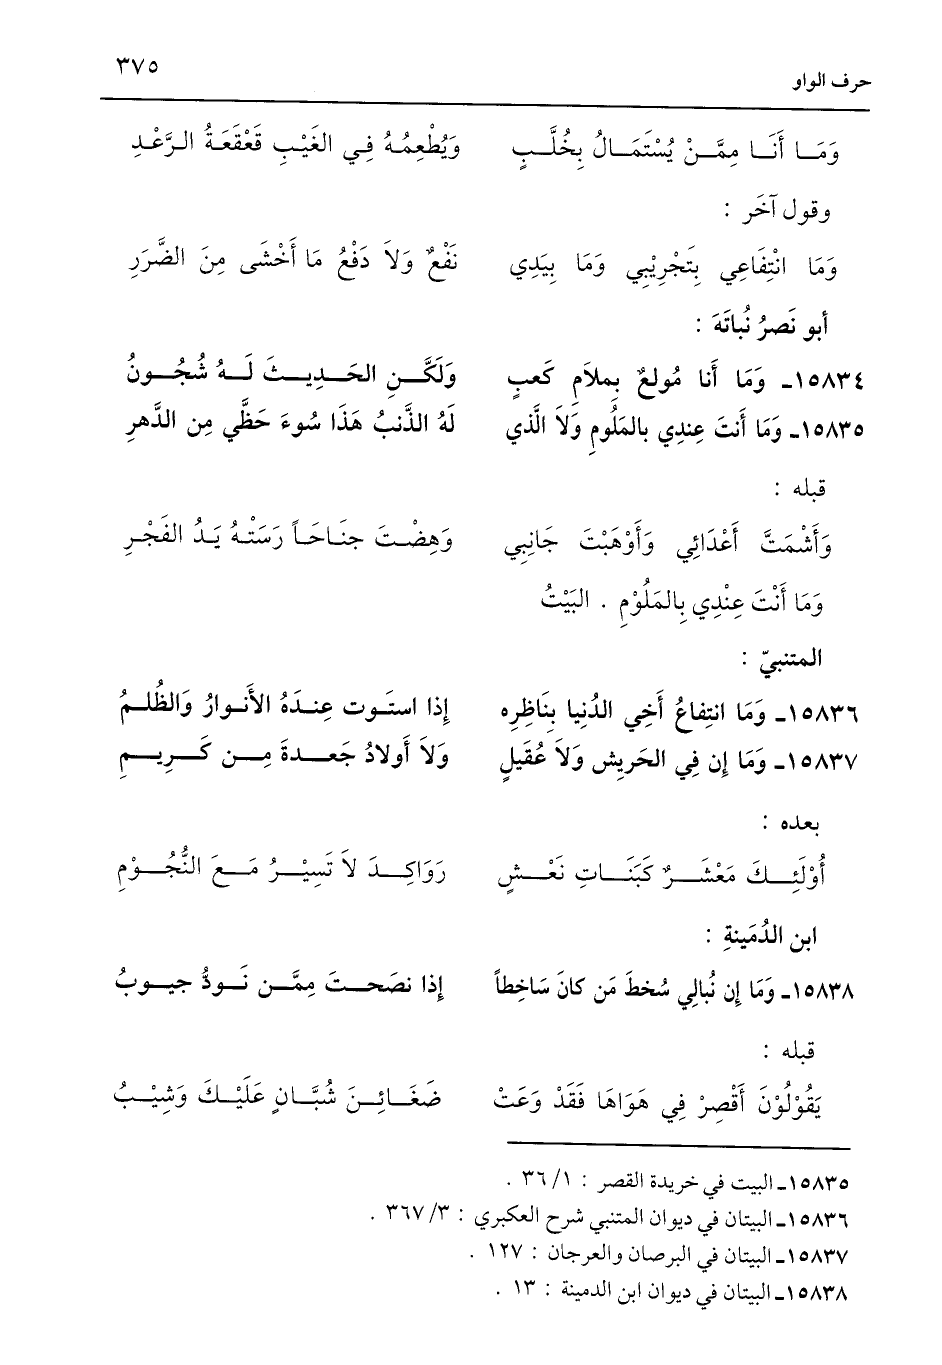 حرف الواو ٣٧٥
وَمَــا أَنَــا مِمَّــنْ يُسْتَمَــالُ بِخُلَّــبٍ وَيُطْعِمُـهُ فِـي الغَيْـبِ قَعْقَعَـةُ الـرَّعْـدِ
وقول آخَر :
وَمَا انْتِفَاعِي بِتَجْرِيْبِي وَمَا بِيَدِي نَفْعٌ وَلاَ دَفْعُ مَا أَخْشَى مِنَ الضَّرَرِ
أبو نَصرُ نُباتَهَ :
١٥٨٣٤ـ وَمَا أَنا مُولعٌ بِملاَمِ كَعبٍ وَلَكَّــنِ الحَــدِيــثَ لَــهُ شُجُــونُ
١٥٨٣٥ـ وَمَا أَنتَ عِندِي بالمَلُومِ وَلاَ الَّذي لَهُ الذَّنبُ هَذَا سُوءَ حَظَّي مِن الدَّهرِ
قبله :
وَأَشْمَتَّ أَعْدَائِي وَأَوْهَبْتَ جَانِبِي وَهِضْـتَ جنَـاحَـاً رَسَتْـهُ يَـدُ الفَجْـرِ
وَمَا أَنْتَ عِنْدِي بِالمَلُوْمِ . البَيْتُ
المتنبيّ :
١٥٨٣٦ـ وَمَا انتِفاعُ أَخِي الدُنِيا بِنَاظِرِه إِذا استَـوت عِنـدَهُ الأَنـوارُ وَالظُلـمُ
١٥٨٣٧ـ وَمَا إِن فِي الحَريش وَلاَ عُقَيلٍ وَلاَ أَولادُ جَعــدةَ مِــن كَــرِيــمِ
بعده :
أُوْلَئِــكَ مَعْشَــرٌ كَبَنَــاتِ نَعْــشٍ رَوَاكِــدَ لاَ تَسِيْــرُ مَــعَ النُّجُــوْمِ
ابن الدُمَينةِ :
١٥٨٣٨ـ وَمَا إِن نُبالِي سُخطَ مَن كانَ سَاخِطاً إِذا نصَحــتَ مِمَّــن نَــودُّ جيــوبُ
قبله :
يَقُوْلُوْنَ أَقْصِرْ فِي هَوَاهَا فَقَدْ وَعَتْ ضَغَـائِـنَ شُبَّـانٍ عَلَيْـكَ وَشِيْـبُ
١٥٨٣٥ـ البيت في خريدة القصر : ١/ ٣٦ .
١٥٨٣٦ـ البيتان في ديوان المتنبي شرح العكبري : ٣/ ٣٦٧ .
١٥٨٣٧ـ البيتان في البرصان والعرجان : ١٢٧ .
١٥٨٣٨ـ البيتان في ديوان ابن الدمينة : ١٣ .